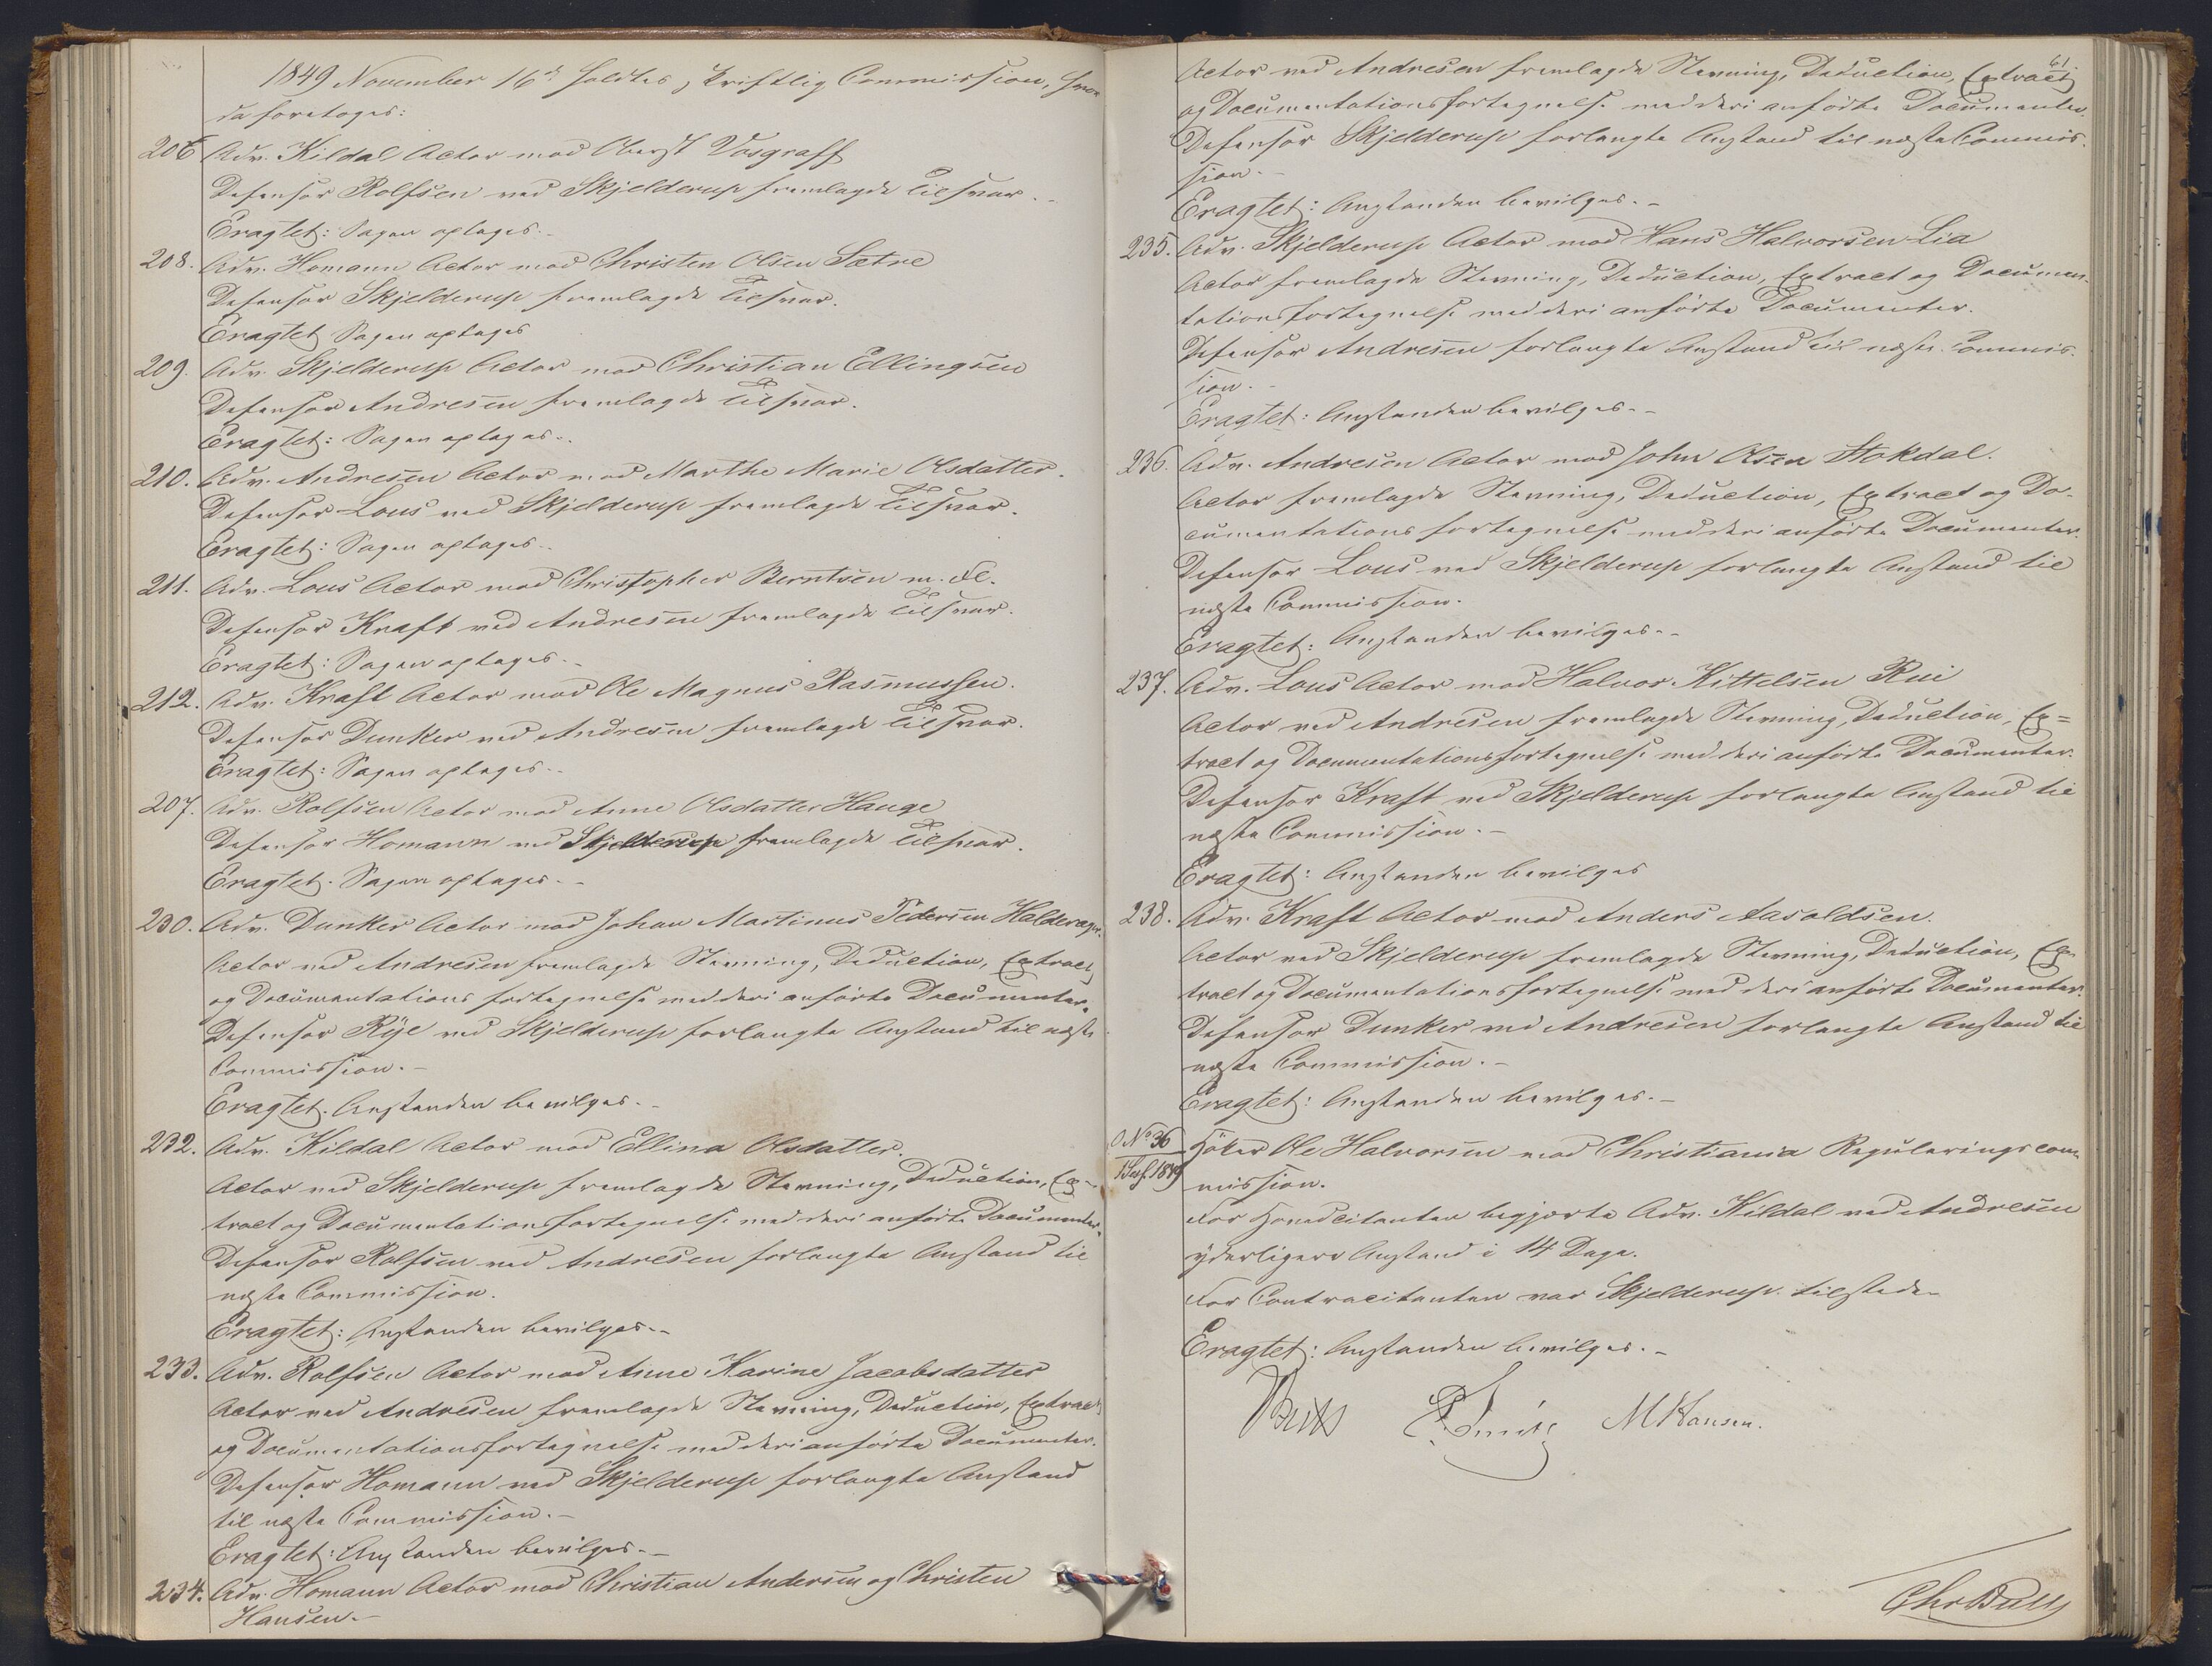 1849 November 16de holdtes skriftlig Commission, hvor
da foretoges:
206 Adv. Kildal Actor mod Oberst Vosgraff
Defensor Rolfsen ved Skjelderup fremlagde Tilsvar.-
Eragtet: Sagen optages.-
208. Adv. Homann Actor mod Christen Olsen Sætre
Defensor Skjelderup fremlagde Tilsvar.
Eragtet Sagen optages
209. Adv. Skjelderup Actor mod Christian Ellingsen
Defensor Andresen fremlagde Tilsvar.
Eragtet: Sagen optages.-
210. Adv. Andresen Actor mod Marthe Marie Olsdatter.
Defensor Lous ved Skjelderup fremlagde Tilsvar.
Eragtet: Sagen optages.-
211. Adv. Lous Actor mod Christopher Berntsen m. Fl.
Defensor Kraft ved Andresen fremlagde Tilsvar.
Eragtet: Sagen optages.-
212. Adv. Kraft Actor mod Ole Magnus Rasmussen.
Defensor Dunker ved Andresen fremlagde Tilsvar.
Eragtet: Sagen optages.-
207. Adv. Rolfsen Actor mod Anne Olsdatter Hauge
Defensor Homann ved Skjelderup fremlagde Tilsvar.
Eragtet. Sagen optages.-
230. Adv. Dunker Actor mod Johan Martinus Pedersen
Actor ved Andresen fremlagde Stevning, Deduction, Extract
og Documentations fortegnelse med deri anførte Documenter.
Defensor Rÿe ved Skjelderup forlangte Anstand til næste
Commission.-
Eragtet. Anstanden bevilges.-
232. Adv. Kildal Actor mod Ellina Olsdatter.
Actor ved Skjelderup fremlagde Stevning, Deduction, Ex-
tract og Documentationsfortegnelse med deri anførte Documenter.
Defensor Rolfsen ved Andresen forlangte Anstand til
næste Commission.
Eragtet: Anstanden bevilges.-
233. Adv. Rolfsen Actor mod Anne Karine Jacobsdatter
Actor ved Andresen fremlagde Stevning, Deduction, Extract
og Documentationsfortegnelse med deri anførte Documenter.
Defensor Homann ved Skjelderup forlangte Anstand
til næste Commission.-
Eragtet: Anstanden bevilges.-
234. Adv. Homann Actor mod Christian Andersen og Christen
Hansen.-
61
Actor ved Andresen fremlagde Stevning, Deduction, Extract
og Documentationsfortegnelse med deri anførte Documenter.
Defensor Skjelderup forlangte Anstand til næste Commis-
sion.-
Eragtet: Anstanden bevilges.-
235. Adv. Skjelderup Actor mod Hans Halvorsen Lia
Actor fremlagde Stevning, Deduction, Extract og Documen-
tationsfortegnelse med deri anførte Documenter.
Defensor Andresen forlangte Anstand til næste Commis-
sion.-
Eragtet: Anstanden bevilges.-
236. Adv. Andresen Actor mod John Olsen Stokdal.
Actor fremlagde Stevning, Deduction, Extract og Do-
cumentations fortegnelse med deri anførte Documenter.
Defensor Lous ved Skjelderup forlangte Anstand til
næste Commission.
Eragtet: Anstanden bevilges.-
237. Adv. Lous Actor mod Halvor Kittelsen Rui
Actor ved Andresen fremlagde Stevning, Deduction, Ex=
tract og Documentationsfortegnelse med deri anførte Documenter.
Defensor Kraft ved Skjelderup forlangte Anstand til
næste Commission.-
Eragtet: Anstanden bevilges
238. Adv. Kraft Actor mod Anders Aasoldsen.
Actor ved Skjelderup fremlagde Stevning, Deduction, Ex-
tract og Documentationsfortegnelse med deri anførte Documenter.
Defensor Dunker ved Andresen forlangte Anstand til
næste Commission.-
Eragtet: Anstanden bevilges.-
O No 36 Høker Ole Halvorsen mod Christiania Reguleringscom-
1849 mission.
For Hovedcitanten begjærte Adv. Kildal ved Andresen
yderligere Anstand i 14 Dage.
For Contracitanten var Skjelderup tilstede.
Eragtet: Anstanden bevilges.-
Bull MHansen.
Chr Bull